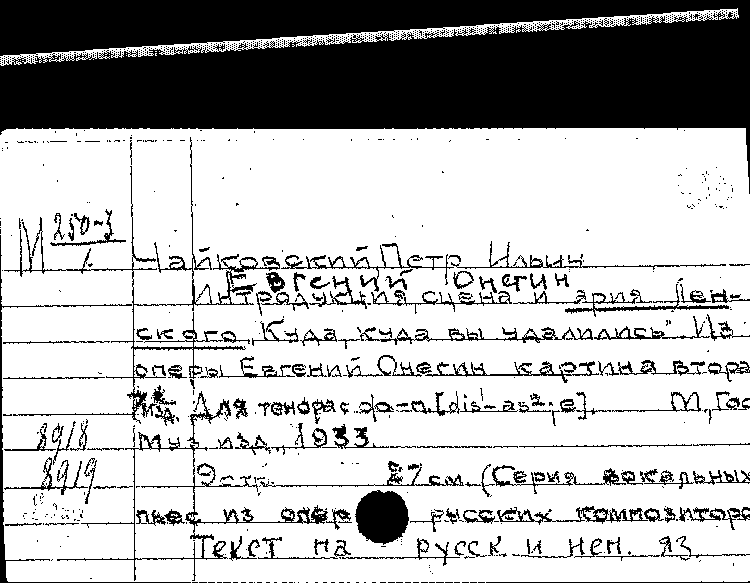 М 250-3
1.
Чайковский, Петр Ильич
Евгений Онегин
Интродукция, сцена и ария Лен-
ского „Куда, куда вы удалились". Из
оперы Евгений Онегин картина втора
Для тенора с ф-п. [dis¹-as²; e]. М., Гос
Муз. изд., 1933.
8918
8919
9 стр. 27 см. (Серия вокальных
пьес из опер русских композиторо
Текст на русск. и нем. яз.